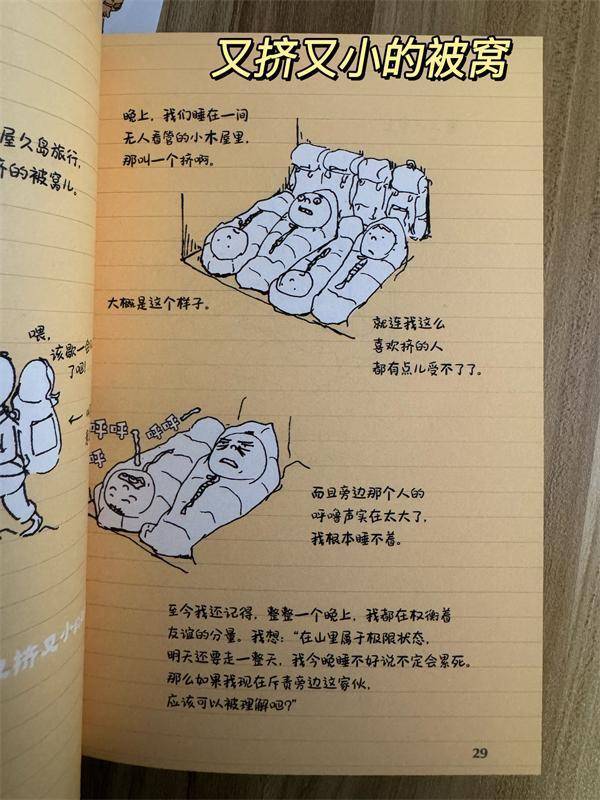 又挤又小的被窝
屋久岛旅行,
挤的被窝儿。
喂,
该歇一会
了吧!
晚上,我们睡在一间
无人看管的小木屋里,
那叫一个挤啊。
大概是这个样子。
就连我这么
喜欢挤的人
都有点儿受不了了。
呼呼
呼呼
呼
而且旁边那个人的
呼噜声实在太大了,
我根本睡不着。
至今我还记得,整整一个晚上,我都在权衡着
友谊的分量。我想:“在山里属于极限状态,
明天还要走一整天,我今晚睡不好说不定会累死。
那么如果我现在斥责旁边这家伙,
应该可以被理解吧?”
又挤又小的
29